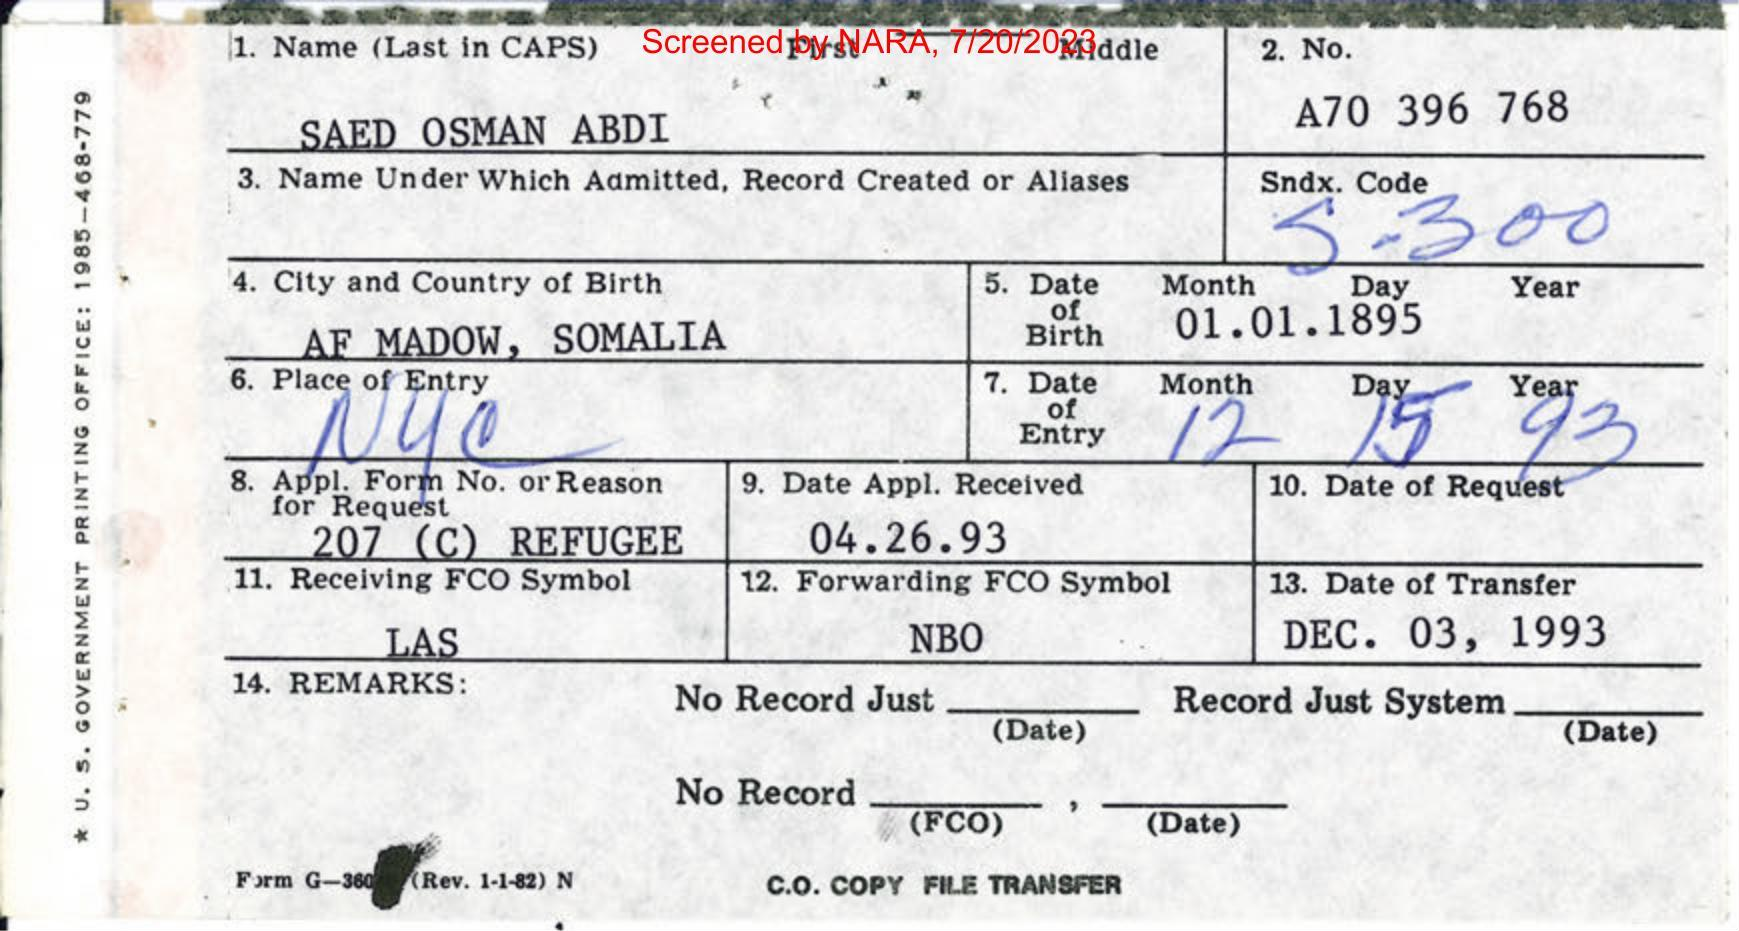 Screened by NARA, 7/20/2023
1. Name (Last in CAPS) First Middle
SAED OSMAN ABDI
2. No.
A70 396 768
3. Name Under Which Admitted, Record Created or Aliases
Sndx. Code
S-300
4. City and Country of Birth
AF MADOW, SOMALIA
5. Date of Birth Month Day Year
01.01.1895
6. Place of Entry
NYC
7. Date of Entry Month Day Year
12 15 93
8. Appl. Form No. or Reason
for Request
207 (C) REFUGEE
9. Date Appl. Received
04.26.93
10. Date of Request
11. Receiving FCO Symbol
LAS
12. Forwarding FCO Symbol
NBO
13. Date of Transfer
DEC. 03, 1993
14. REMARKS:
No Record Just (Date)
Record Just System (Date)
No Record (FCO) , (Date)
Form G-360 (Rev. 1-1-82) N
C.O. COPY FILE TRANSFER
★ U. S. GOVERNMENT PRINTING OFFICE: 1985-468-779